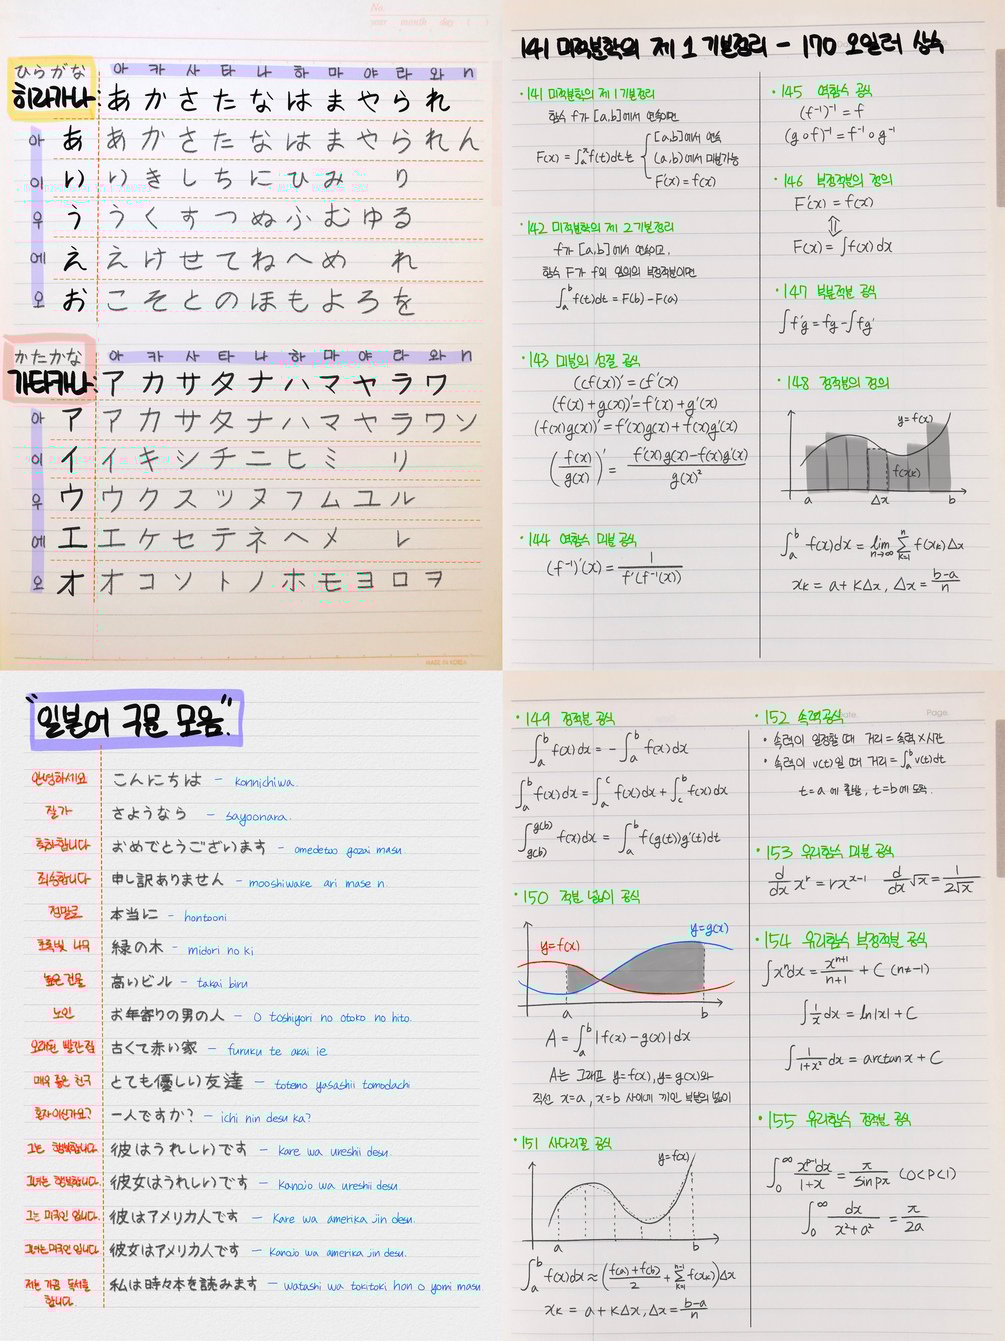 No.
year month day ( )
ひらがな 아 카 사 타 나 하 마 야 라 와 n
히라가나: あ か さ た な は ま や ら れ
아 あ あ か さ た な は ま や ら れ ん
이 い い き し ち に ひ み り
우 う う く す つ ぬ ふ む ゆ る
에 え え け せ て ね へ め れ
오 お こ そ と の ほ も よ ろ を
かたかな 아 카 사 타 나 하 마 야 라 와 n
가타카나: ア カ サ タ ナ ハ マ ヤ ラ ワ
아 ア ア カ サ タ ナ ハ マ ヤ ラ ワ ソ
이 イ イ キ シ チ ニ ヒ ミ リ
우 ウ ウ ク ス ツ ヌ フ ム ユ ル
에 エ エ ケ セ テ ネ ヘ メ レ
오 オ オ コ ソ ト ノ ホ モ ヨ ロ ヲ
MADE IN KOREA
141 미적분학의 제 1 기본정리 - 170 오일러 상수
·141 미적분학의 제 1 기본정리
함수 f가 [a,b]에서 연속이면
F(x) = ∫_a^x f(t)dt는 { [a,b]에서 연속
(a,b)에서 미분가능
F'(x) = f(x)
·142 미적분학의 제 2 기본정리
f가 [a,b]에서 연속이고,
함수 F가 f의 임의의 부정적분이면
∫_a^b f(t)dt = F(b) - F(a)
·143 미분의 성질 공식
(cf(x))' = cf'(x)
(f(x) + g(x))' = f'(x) + g'(x)
(f(x)g(x))' = f'(x)g(x) + f(x)g'(x)
(f(x)/g(x))' = (f'(x)g(x) - f(x)g'(x))/g(x)²
·144 역함수 미분 공식
(f⁻¹)'(x) = 1/f'(f⁻¹(x))
·145 역함수 공식
(f⁻¹)⁻¹ = f
(g∘f)⁻¹ = f⁻¹∘g⁻¹
·146 부정적분의 정의
F'(x) = f(x)
⇕
F(x) = ∫f(x)dx
·147 부분적분 공식
∫f'g = fg - ∫fg'
·148 정적분의 정의
y=f(x)
f(xₖ)
a Δx b
∫_a^b f(x)dx = lim_{n→∞} Σ_{k=1}^n f(xₖ)Δx
xₖ = a + kΔx, Δx = (b-a)/n
"일본어 구문 모음."
안녕하세요 こんにちは - konnichiwa.
잘가 さようなら - sayoonara.
축하합니다 おめでとうございます - omedetoo gozai masu.
죄송합니다 申し訳ありません - mooshiwake ari mase n.
정말로 本当に - hontooni
초록빛 나무 緑の木 - midori no ki
높은 건물 高いビル - takai biru
노인 お年寄りの男の人 - O toshiyori no otoko no hito.
오래된 빨간집 古くて赤い家 - furuku te akai ie
매우 좋은 친구 とても優しい友達 - totemo yasashii tomodachi
혼자이신가요? 一人ですか? - ichi nin desu ka?
그는 행복합니다. 彼はうれしいです - kare wa ureshi desu.
그녀는 행복합니다. 彼女はうれしいです - Kanojo wa ureshii desu.
그는 미국인 입니다. 彼はアメリカ人です - Kare wa amerika jin desu.
그녀는 미국인 입니다. 彼女はアメリカ人です - Kanojo wa amerika jin desu.
저는 가끔 독서를 私は時々本を読みます - watashi wa tokitoki hon o yomi masu
합니다.
·149 정적분 공식
∫_a^b f(x)dx = -∫_a^b f(x)dx
∫_a^b f(x)dx = ∫_a^c f(x)dx + ∫_c^b f(x)dx
∫_{g(b)}^{g(b)} f(x)dx = ∫_a^b f(g(t))g'(t)dt
·150 적분 넓이 공식
y=f(x) y=g(x)
a b
A = ∫_a^b |f(x) - g(x)|dx
A는 그래프 y=f(x), y=g(x)와
직선 x=a, x=b 사이에 끼인 부분의 넓이
·151 사다리꼴 공식
y=f(x)
a b
∫_a^b f(x)dx ≈ ((f(a)+f(b))/2 + Σ_{k=1}^{n-1} f(xₖ))Δx
xₖ = a + kΔx, Δx = (b-a)/n
Page.
·152 속력공식
· 속력이 일정할 때 거리 = 속력 × 시간
· 속력이 v(t)일 때 거리 = ∫_a^b v(t)dt
t=a에 출발, t=b에 도착.
·153 유리함수 미분 공식
d/dx x^r = rx^{x-1} d/dx √x = 1/(2√x)
·154 유리함수 부정적분 공식
∫xⁿdx = x^{n+1}/(n+1) + C (n≠-1)
∫1/x dx = ln|x| + C
∫1/(1+x²) dx = arctan x + C
·155 유리함수 정적분 공식
∫_0^∞ x^{p-1}dx/(1+x) = π/sin px (0<P<1)
∫_0^∞ dx/(x²+a²) = π/2a